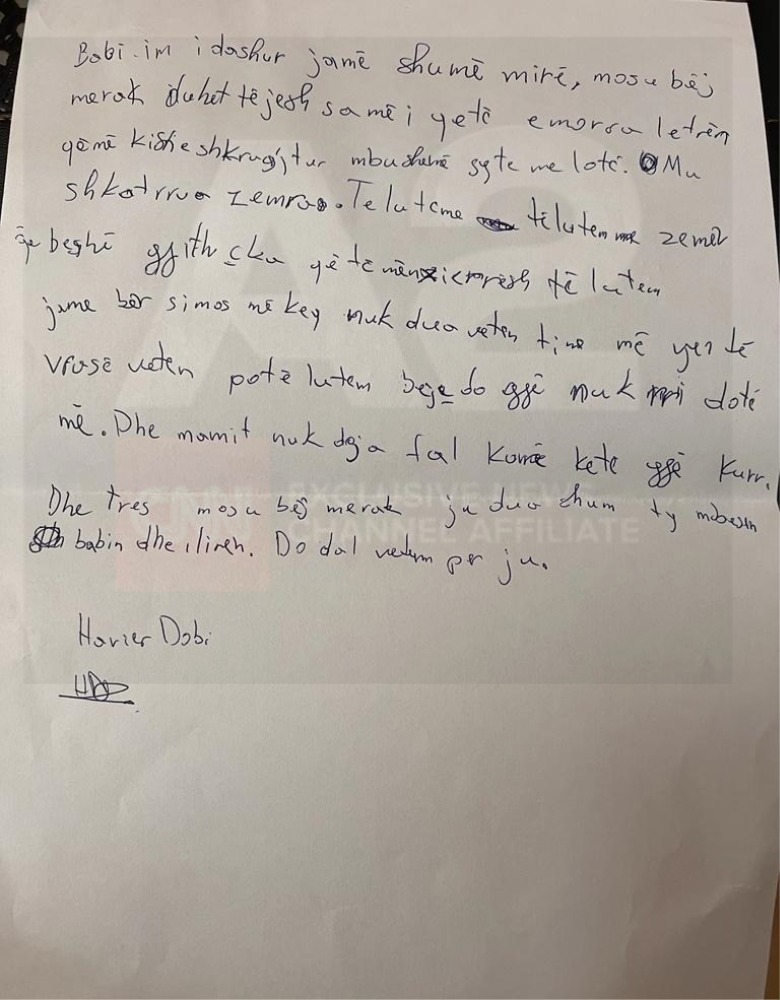 Babi im i dashur jamë shumë mirë, mosu bëj
merak duhet të jesh sa më i qetë e mora letrën
që më kishe shkruajtur mbushenë syte me lotë. Mu
shkatrrua zemra. Te luteme të lutem me zemër
që beshë gjith çka që të mën të lutem
jame bër si mos më key nuk dua veten time më yer të
vrasë veten po të lutem beje do gjë nuk doté
më. Dhe mamit nuk dja fal kurrë ketë gjë kurr.
Dhe tres mosu bëj merak ju dua shum ty mbesën
babin dhe iliren. Do dal vetem per ju.
Havier Dobi
HD
A2
CNN
EXCLUSIVE NEWS
CHANNEL AFFILIATE